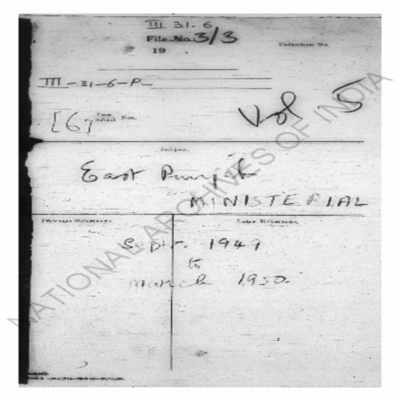 III. 31. 6
File No. 3/3
19
Collection No.
III - 31 - 6 - P -
[6]
Nos.
Vol 5
Subject.
East Punjab
MINISTERIAL
Previous References
Later References
Sept. 1949
to
March 1950.
NATIONAL ARCHIVES OF INDIA